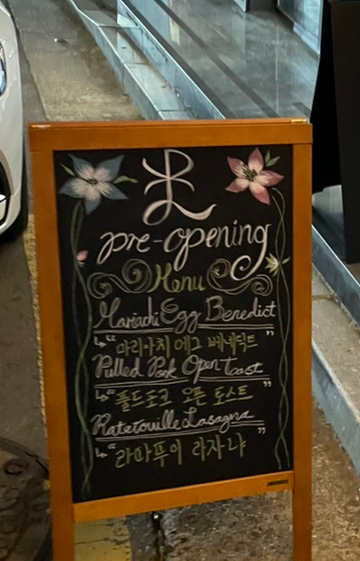 pre-opening
Menu
Mariachi Egg Benedict
"마리아치 에그 베네딕트"
Pulled Pork Open Tost
"풀드포크 오픈 토스트"
Ratatouille Lasagna
"라따뚜이 라자냐"